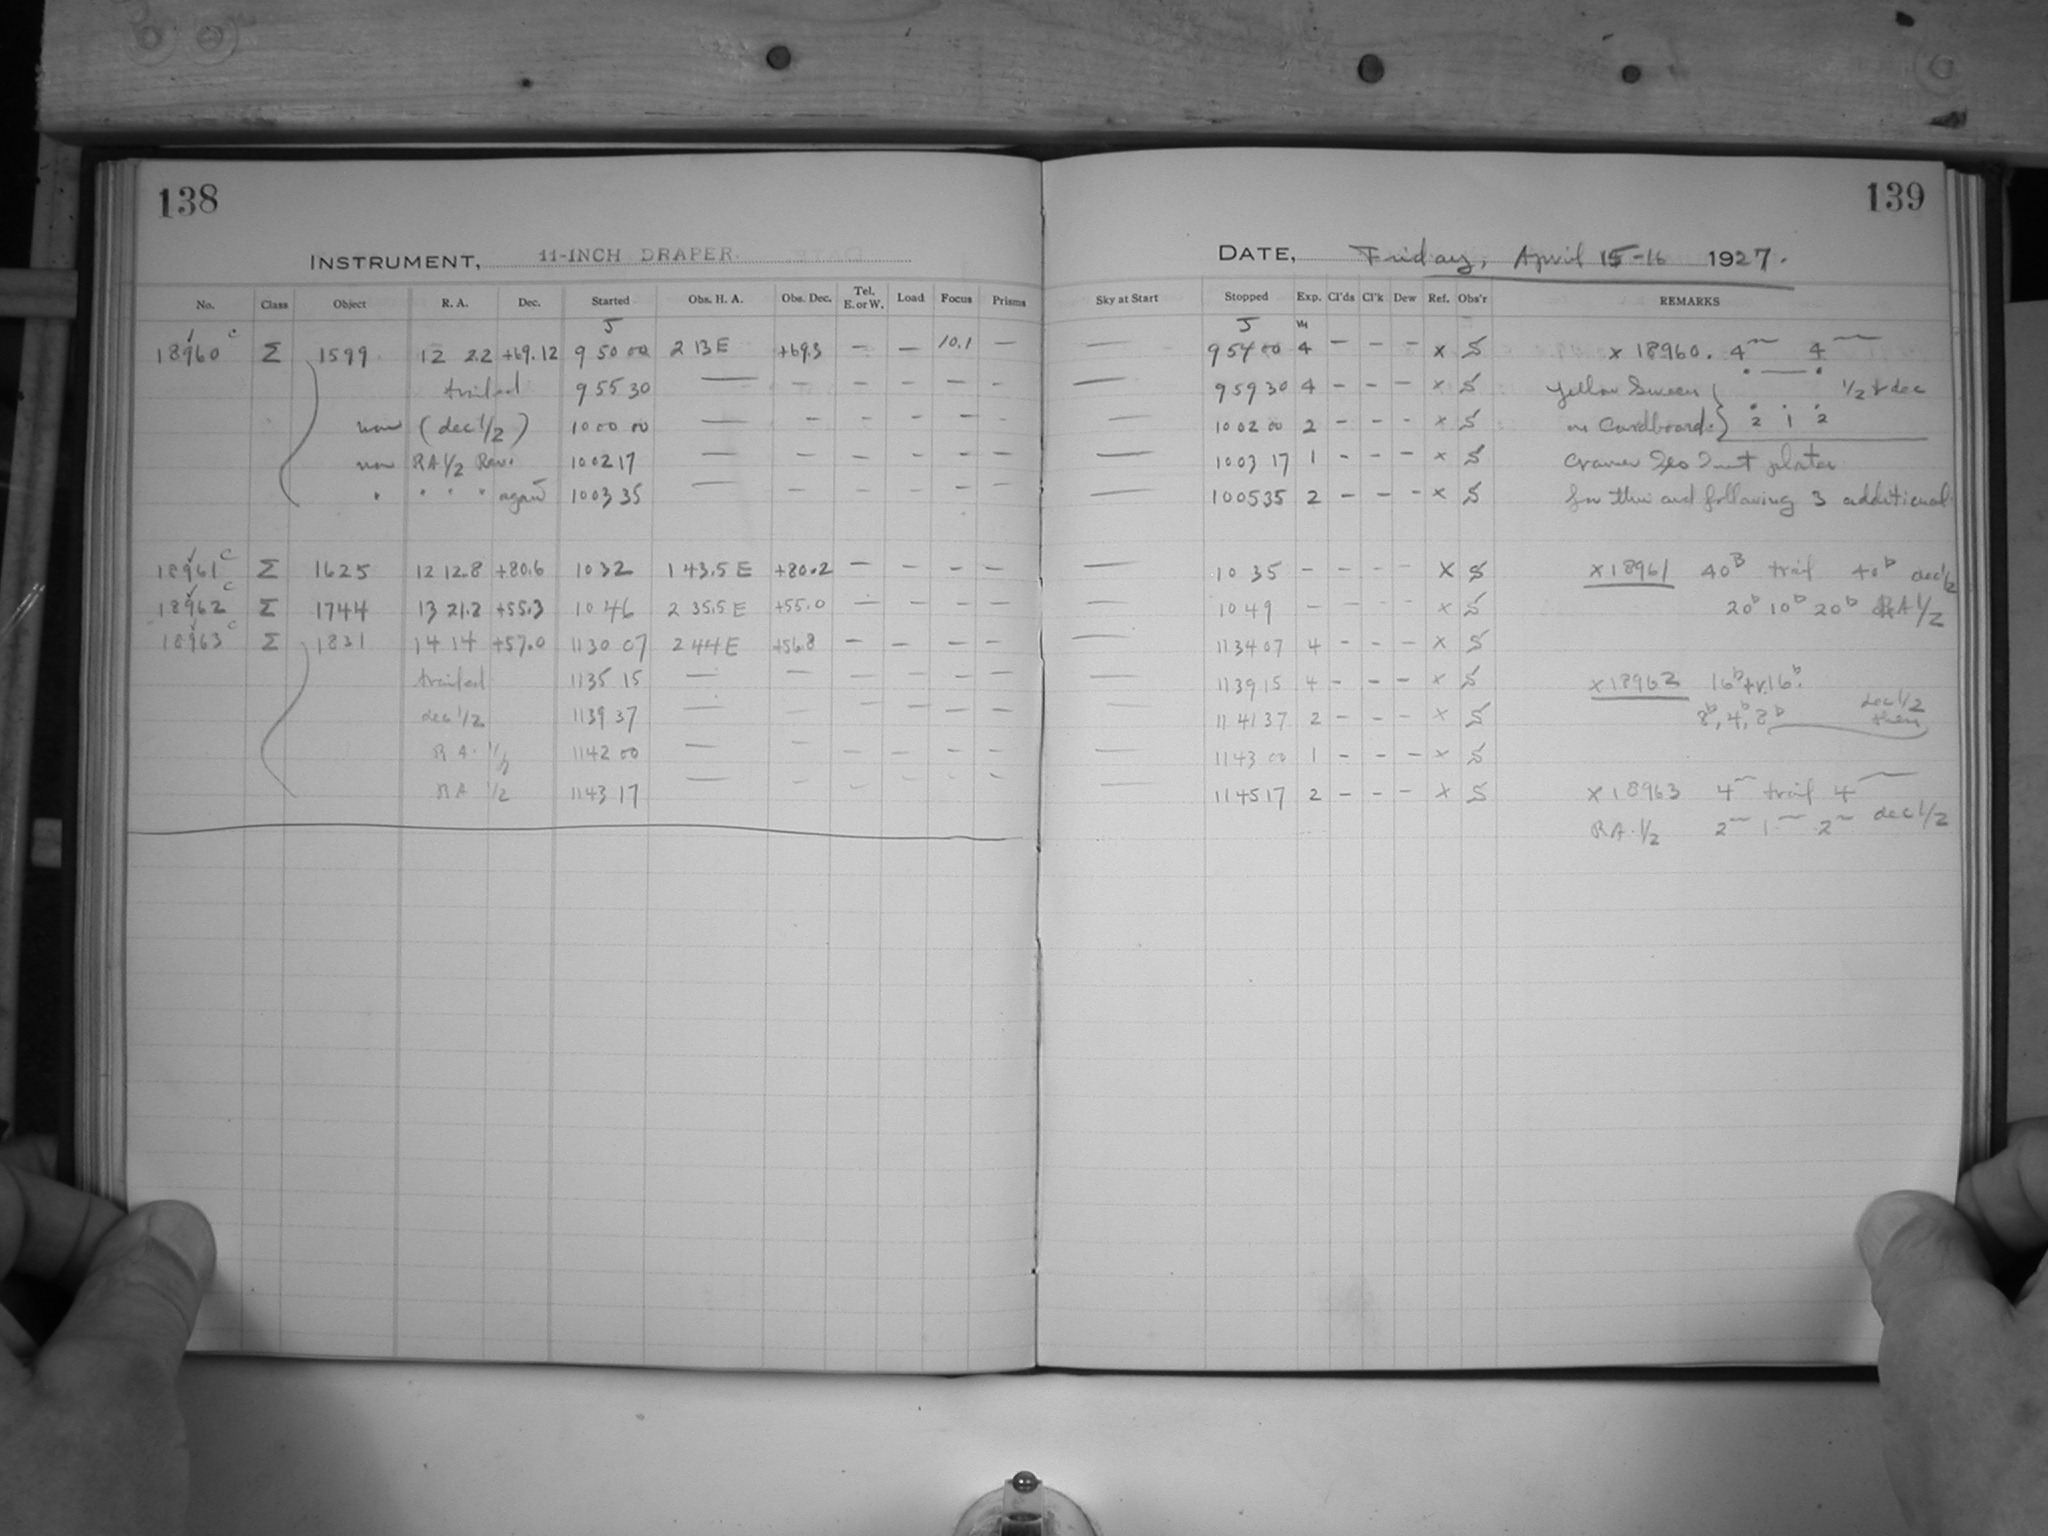 138
INSTRUMENT, 11-INCH DRAPER.
No. Class Object R. A. Dec. Started Obs. H. A. Obs. Dec. Tel. E. or W. Load Focus Prisms
18960 c Σ 1599 12 22 +69.12 9 50 00 2 13 E +69.3 — — 10.1 —
trailed 9 55 30 — — — — — —
now (dec 1/2) 10 00 00 — — — — — —
now RA 1/2 Rev. 10 02 17 — — — — — —
" " " " again 10 03 35 — — — — — —
18961 c Σ 1625 12 12.8 +80.6 10 32 1 43.5 E +80.2 — — — —
18962 c Σ 1744 13 21.2 +55.3 10 46 2 35.5 E +55.0 — — — —
18963 c Σ 1831 14 14 +57.0 11 30 07 2 44 E +56.8 — — — —
trailed 11 35 15 — — — — — —
dec 1/2 11 39 37 — — — — — —
R A 1/2 11 42 00 — — — — — —
RA 1/2 11 43 17 — — — — — —
139
DATE, Friday, April 15-16 1927.
Sky at Start Stopped Exp. Cl'ds Cl'k Dew Ref. Obs'r REMARKS
— 9 54 00 4 — — — x S x 18960. 4m 4m
— 9 59 30 4 — — — x S Yellow Screen 1/2 dec
— 10 02 00 2 — — — x S on Cardboard. 2 1 2
— 10 03 17 1 — — — x S Cramer Iso Inst plates
— 10 05 35 2 — — — x S for this and following 3 additional.
— 10 35 — — — — x S x 18961 40b trail 40b dec 1/2
— 10 49 — — — — x S 20b 10b 20b RA 1/2
— 11 34 07 4 — — — x S
— 11 39 15 4 — — — x S x 18962 16b tr. 16b.
— 11 41 37 2 — — — x S 8b, 4b, 8b dec 1/2 then
— 11 43 00 1 — — — x S
— 11 45 17 2 — — — x S x 18963 4m trail 4m
RA 1/2 2m 1m 2m dec 1/2